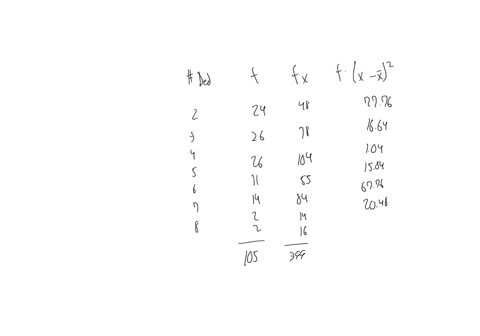 # Ded f fx f·(x - x̄)²
2 24 48 77.76
3 26 78 16.64
4 26 104 1.04
5 11 55 15.84
6 14 84 67.76
7 2 14 20.48
8 2 16
105 399